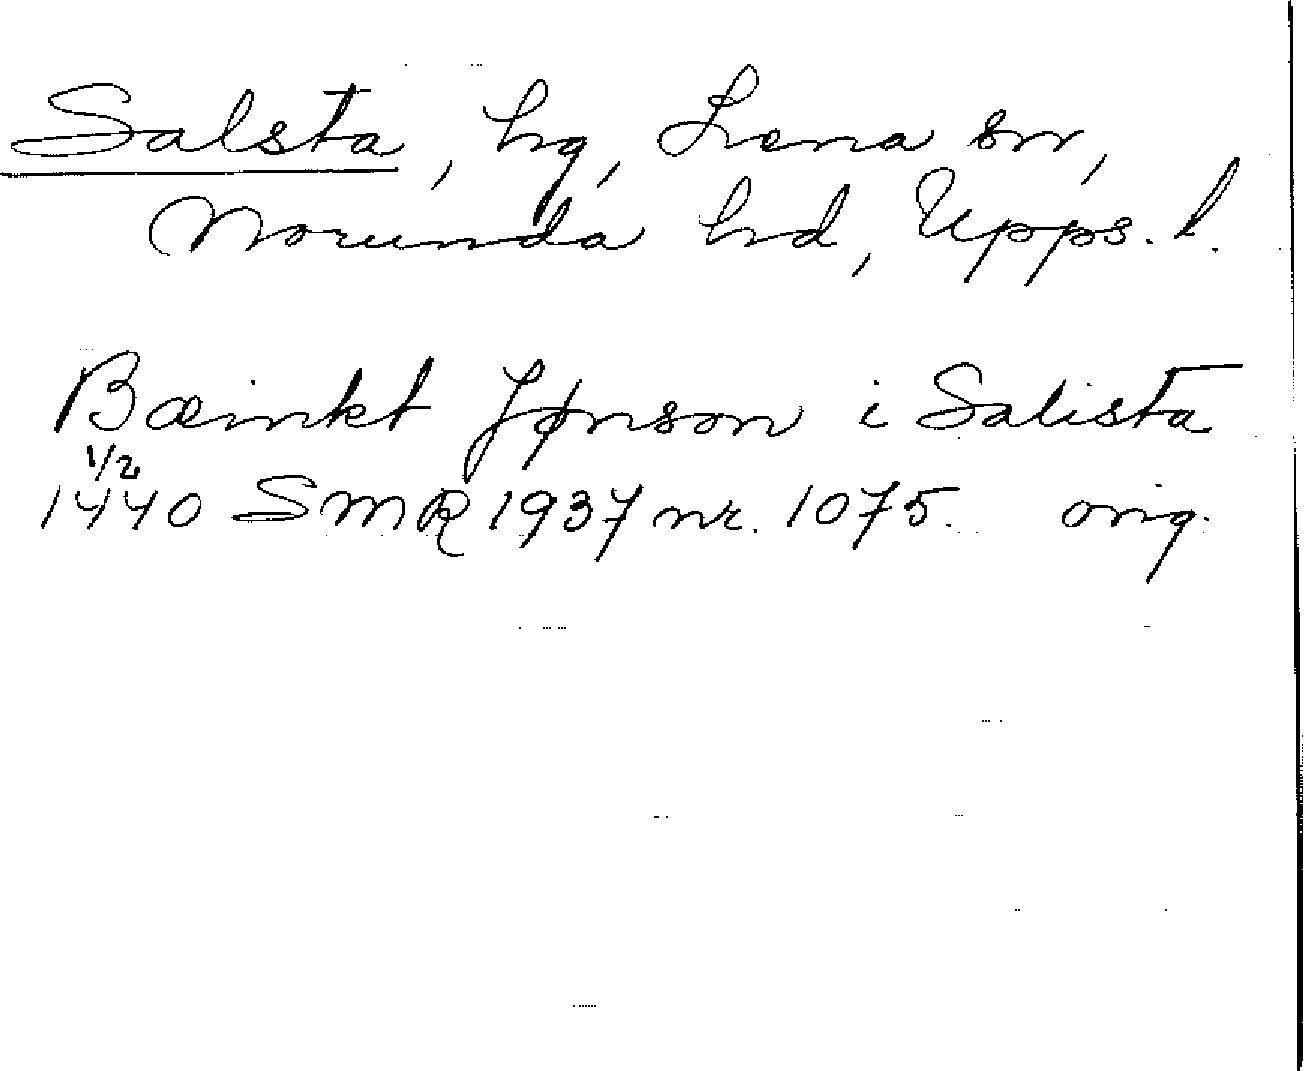 Salsta, hg, Lena sn,
Norunda hd, Upps. l.
Bæinkt Jønson i Salista
1/2
1440 SMR 1937 nr. 1075. orig.